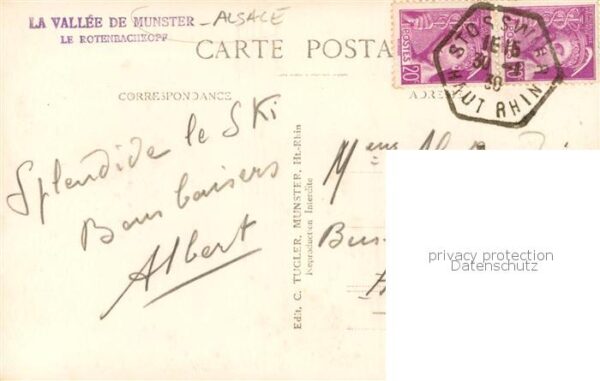 LA VALLÉE DE MUNSTER - ALSACE
LE ROTENBACHKOPF
CARTE POSTA
CORRESPONDANCE
ADRE
POSTES
20
STOSSWIHR
HAUT RHIN
30
Splendide le SKi
Bons baisers
Albert
Edit. C. TUGLER, MUNSTER, Ht.-Rhin
Reproduction Interdite
privacy protection
Datenschutz